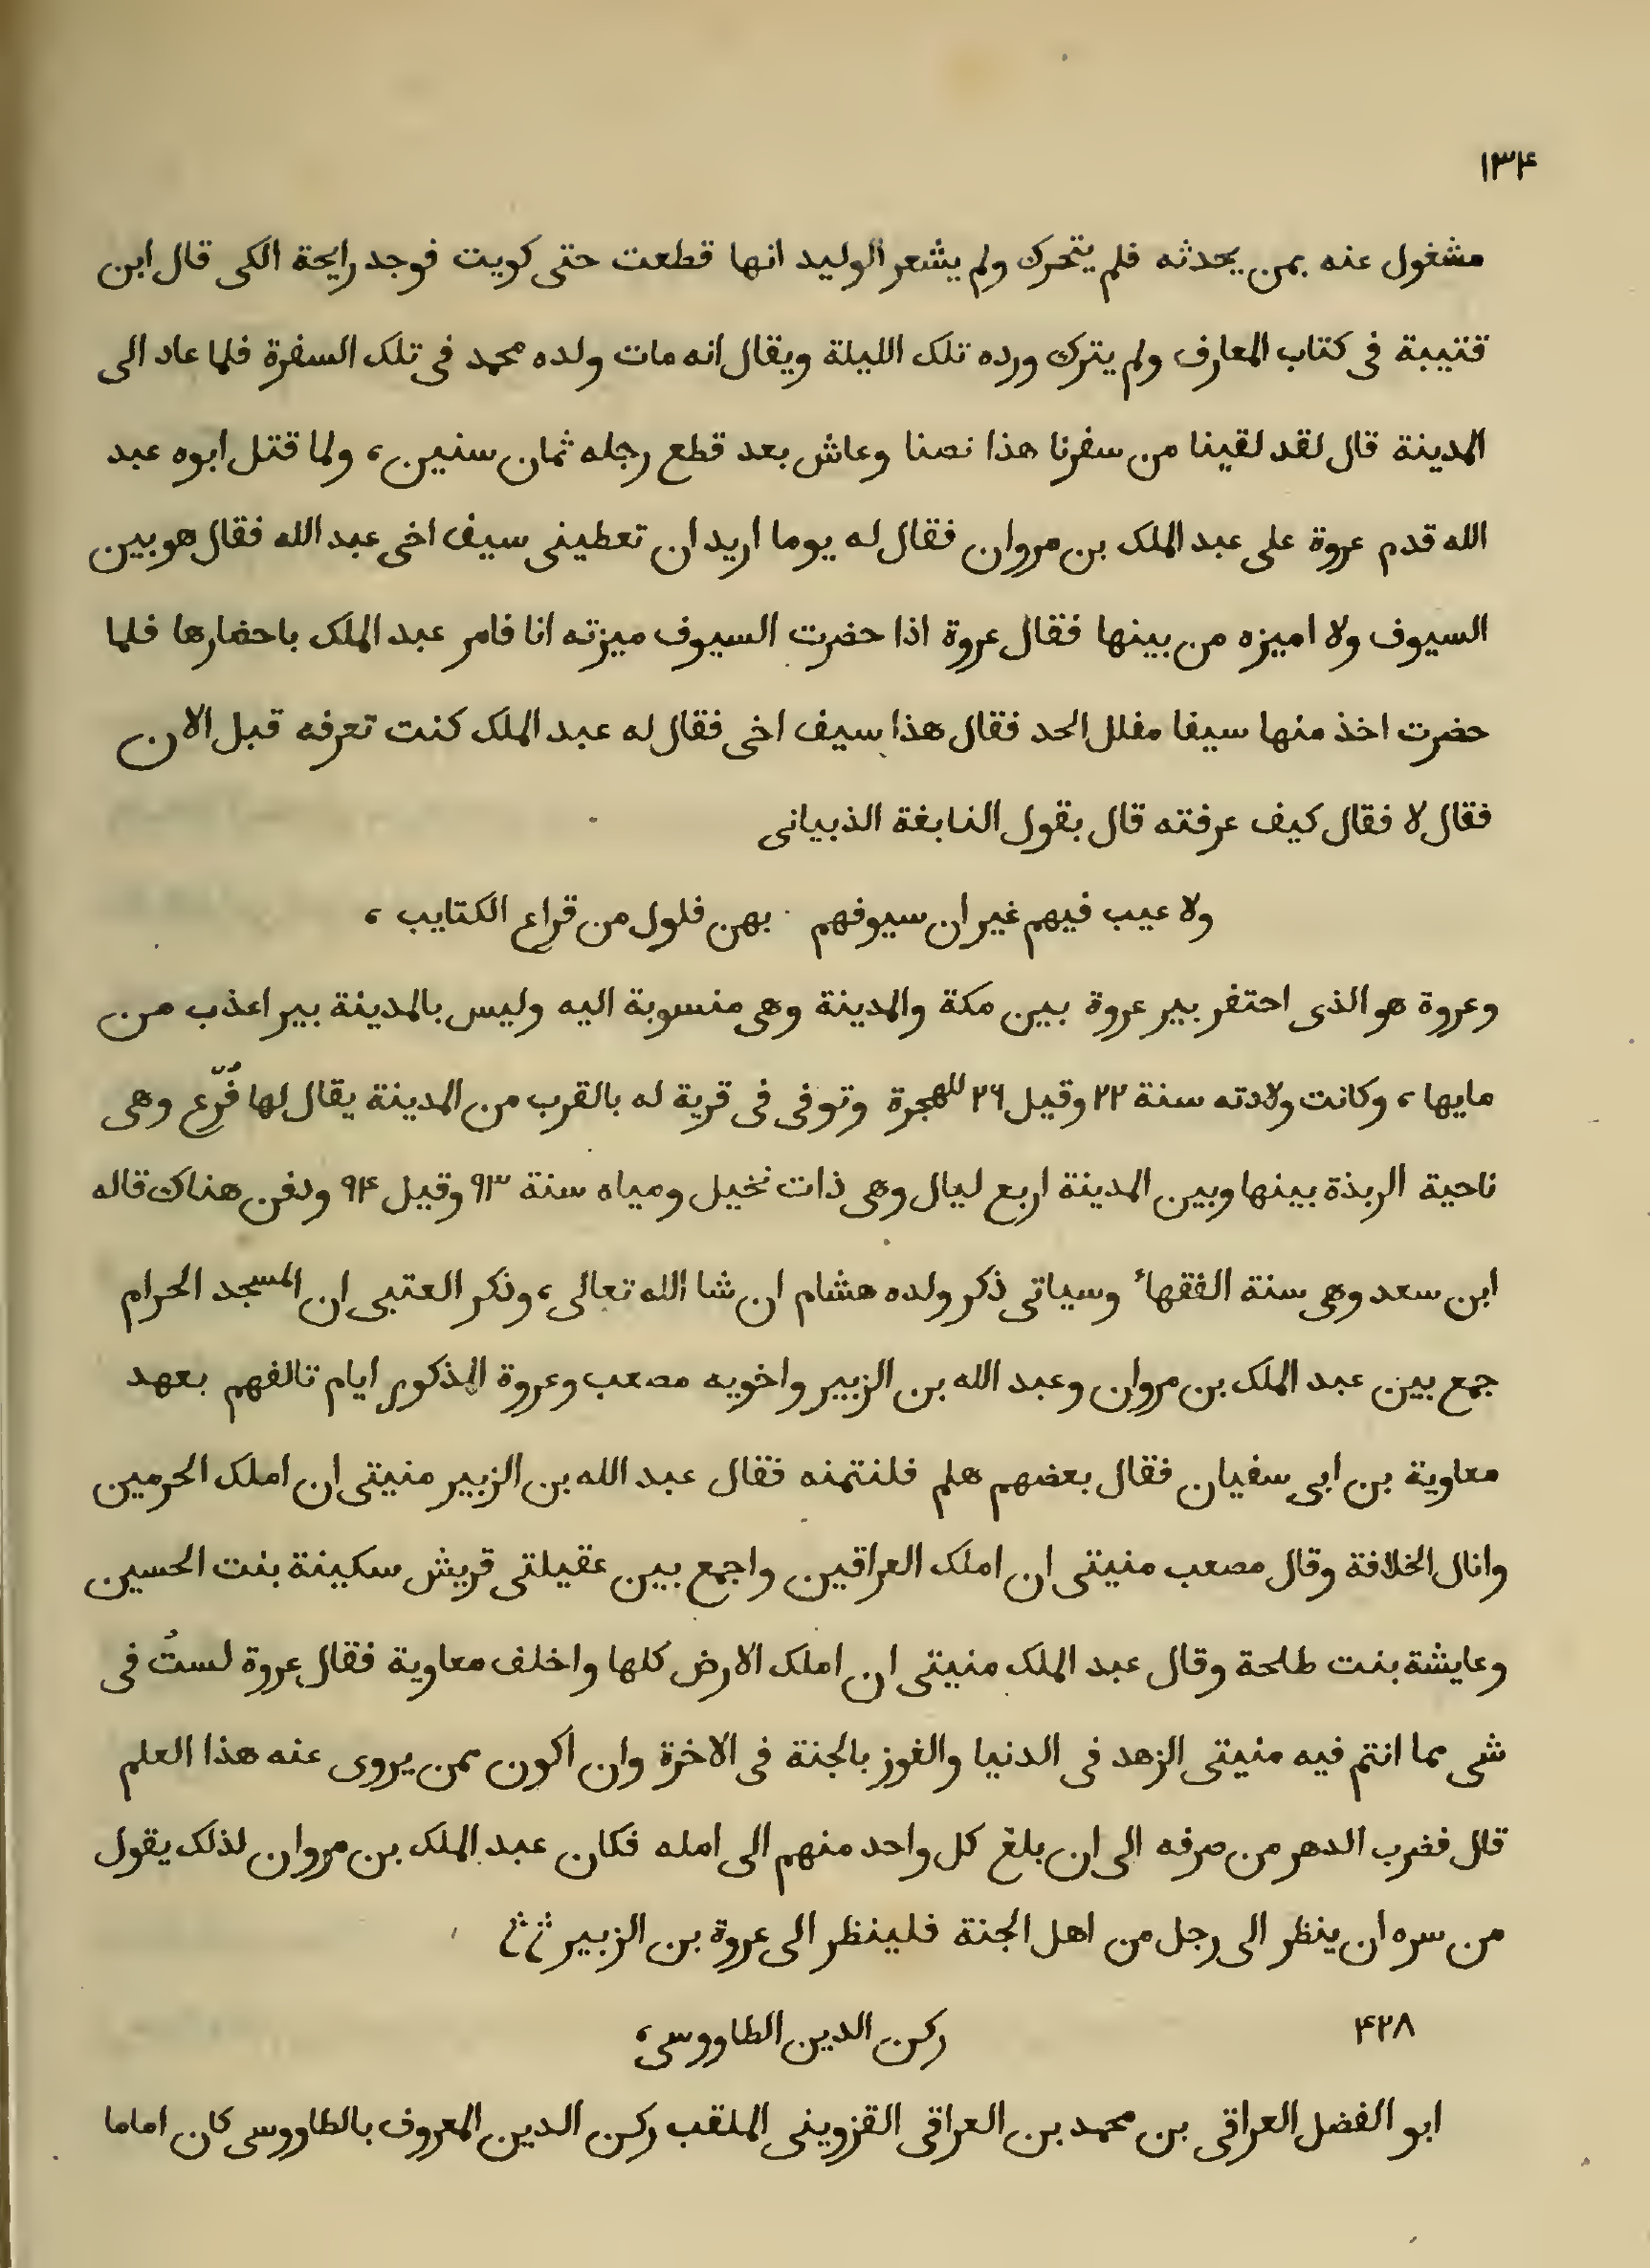 ١٣۴
مشغول عنه بمن يحدثه فلم يتحرك ولم يشعر الوليد انها قطعت حتى كويت فوجد رايحة الكى قال ابن
قتيبة فى كتاب المعارف ولم يترك ورده تلك الليلة ويقال انه مات ولده محمد فى تلك السفرة فلما عاد الى
المدينة قال لقد لقينا من سفرنا هذا نصنا وعاش بعد قطع رجله ثمان سنين، ولما قتل ابوه عبد
الله قدم عروة على عبد الملك بن مروان فقال له يوما اريد ان تعطينى سيف اخى عبد الله فقال هو بين
السيوف ولا اميزه من بينها فقال عروة اذا حضرت السيوف ميزته انا فامر عبد الملك باحضارها فلما
حضرت اخذ منها سيفا مفلل الحد فقال هذا سيف اخى فقال له عبد الملك كنت تعرفه قبل الان
فقال لا فقال كيف عرفته قال بقول النابغة الذبيانى
ولا عيب فيهم غير ان سيوفهم بهن فلول من قراع الكتايب،
وعروة هو الذى احتفر بير عروة بين مكة والمدينة وهى منسوبة اليه وليس بالمدينة بير اعذب من
مايها، وكانت ولادته سنة ٢٢ وقيل ٢٦ للهجرة وتوفى فى قرية له بالقرب من المدينة يقال لها فُرّع وهى
ناحية الربذة بينها وبين المدينة اربع ليال وهى ذات نخيل ومياه سنة ٩٣ وقيل ٩۴ ودفن هناك قاله
ابن سعد وهى سنة الفقهاء وسياتى ذكر ولده هشام ان شا الله تعالى، وذكر العتبى ان المسجد الحرام
جمع بين عبد الملك بن مروان وعبد الله بن الزبير واخويه مصعب وعروة المذكور ايام تالفهم بعهد
معاوية بن ابى سفيان فقال بعضهم هلم فلنتمنه فقال عبد الله بن الزبير منيتى ان املك الحرمين
وانال الخلافة وقال مصعب منيتى ان املك العراقين واجمع بين عقيلتى قريش سكينة بنت الحسين
وعايشة بنت طلحة وقال عبد الملك منيتى ان املك الارض كلها واخلف معاوية فقال عروة لستُ فى
شى مما انتم فيه منيتى الزهد فى الدنيا والفوز بالجنة فى الاخرة وان اكون ممن يروى عنه هذا العلم
قال فضرب الدهر من صرفه الى ان بلغ كل واحد منهم الى امله فكان عبد الملك بن مروان لذلك يقول
من سره ان ينظر الى رجل من اهل الجنة فلينظر الى عروة بن الزبير
۴٢٨ ركن الدين الطاووسى،
ابو الفضل العراقى بن محمد بن العراقى القزوينى الملقب ركن الدين المعروف بالطاووسى كان اماما